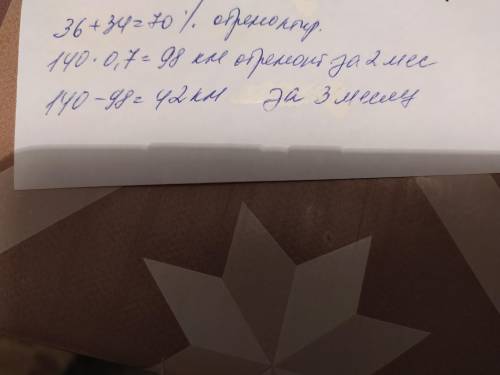 36+34=70% отремонтир.
140·0,7=98 км отремонт за 2 мес
140-98=42км за 3 месяц